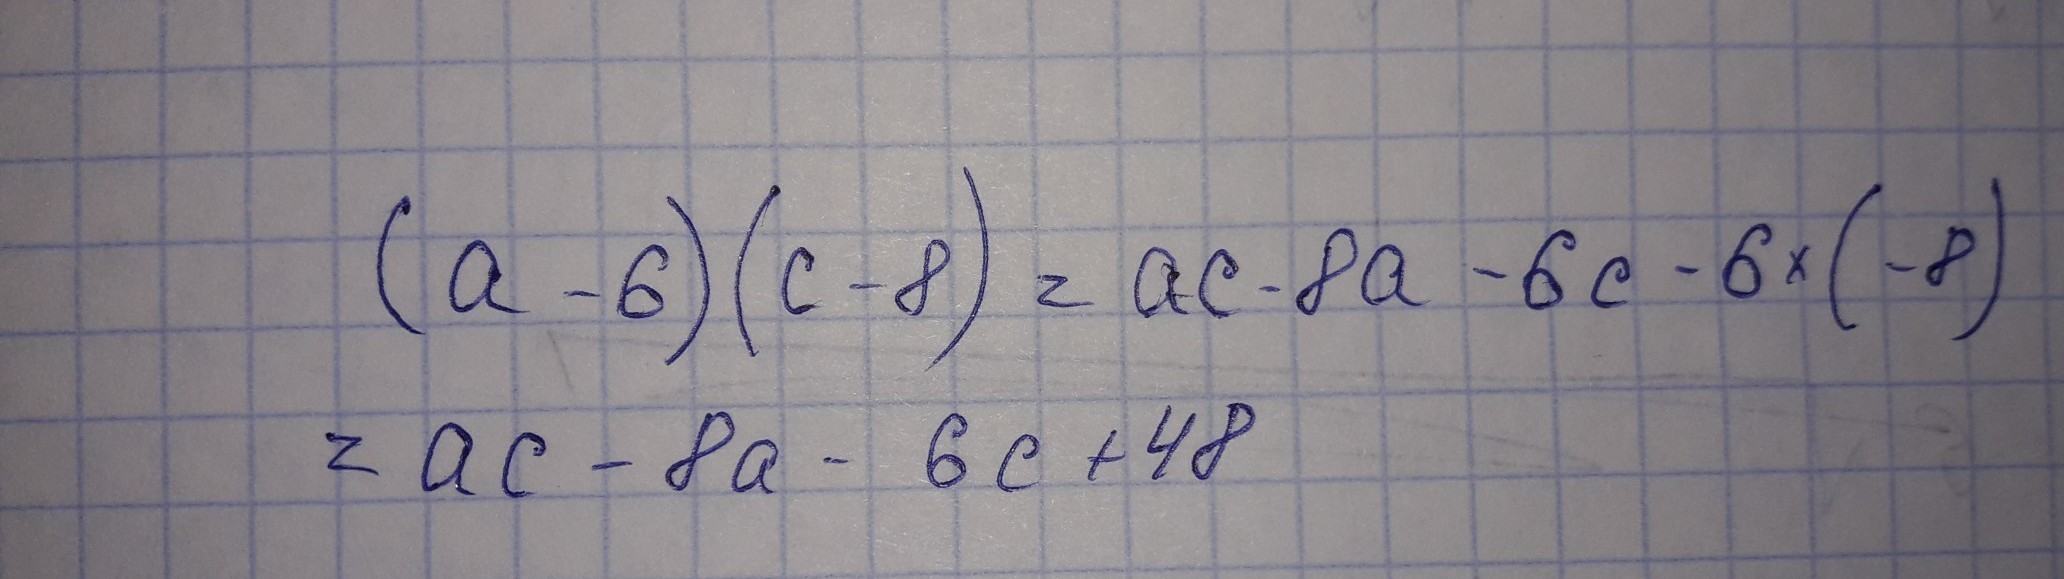 (a - 6)(c - 8) = ac - 8a - 6c - 6 × (-8)
= ac - 8a - 6c + 48